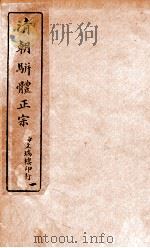 清朝駢體正宗
文瑞樓印行
一
mtoou.info